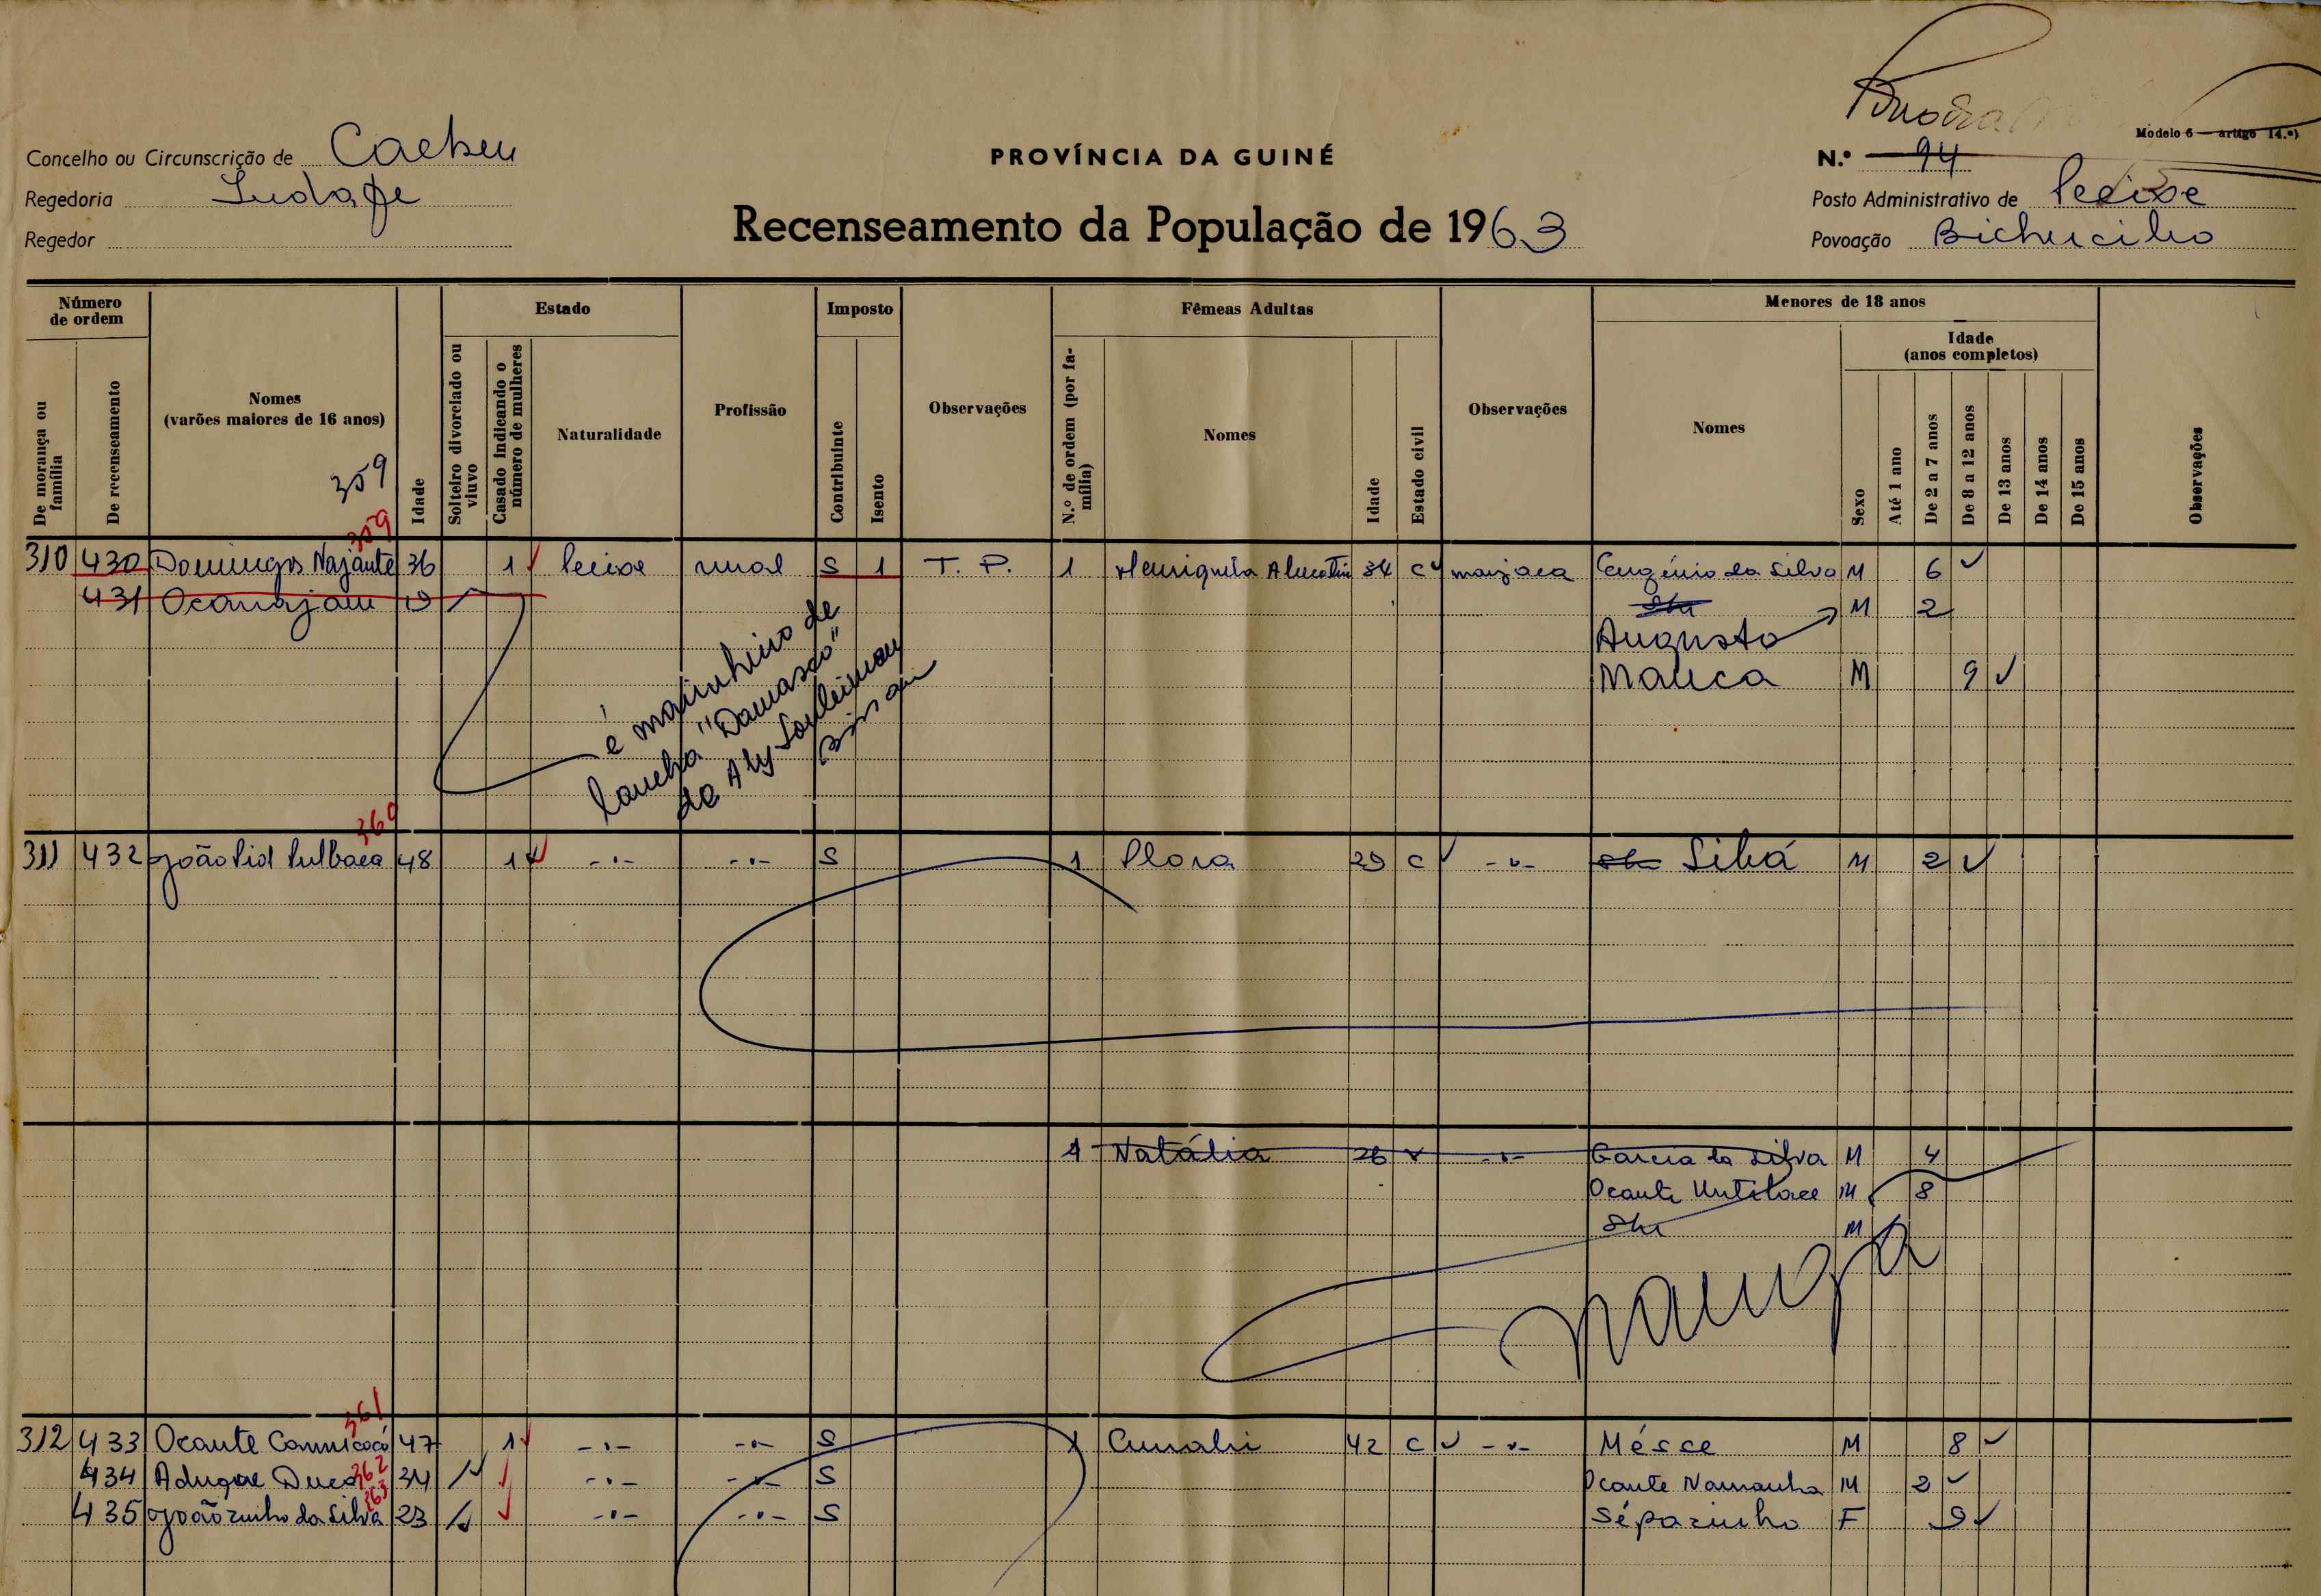 Modelo 6 — artigo 14.º)
Concelho ou Circunscrição de Cacheu
PROVÍNCIA DA GUINÉ
N.º 94
Regedoria
Posto Administrativo de Pecixe
Recenseamento da População de 1963
Regedor
Povoação
Número de ordem
Estado
Imposto
Fêmeas Adultas
Menores de 18 anos
Idade (anos completos)
De morança ou família
De recenseamento
Nomes (varões maiores de 16 anos)
359
Idade
Solteiro divorciado ou viuvo
Casado indicando o número de mulheres
Naturalidade
Profissão
Contribuinte
Isento
Observações
N.º de ordem (por família)
Nomes
Idade
Estado civil
Observações
Nomes
Sexo
Até 1 ano
De 2 a 7 anos
De 8 a 12 anos
De 13 anos
De 14 anos
De 15 anos
Observações
359
310 430 Domingos Najante 36 1 Pecixe rural S 1 T. P. 1 Henriqueta 34 C manjaca Eugénio da Silva M 6
431 M 2
Augusto
Mauca M 9
é marinheiro de
lancha "Damasco"
de Aly Souleiman
360
311 432 João 48 1 -"- -"- S 1 Flora 29 C -"- Silá M 2
1 Natália 26 -"- Garcia da Silva M 4
Ocante M 8
M
361
312 433 Ocante 47 1 -"- -"- S 1 Cunabi 42 C -"- Mésce M 8
362
434 34 -"- -"- S Ocante Namanha M 2
363
435 Joãozinho da Silva 23 -"- -"- S Séparinho F 9